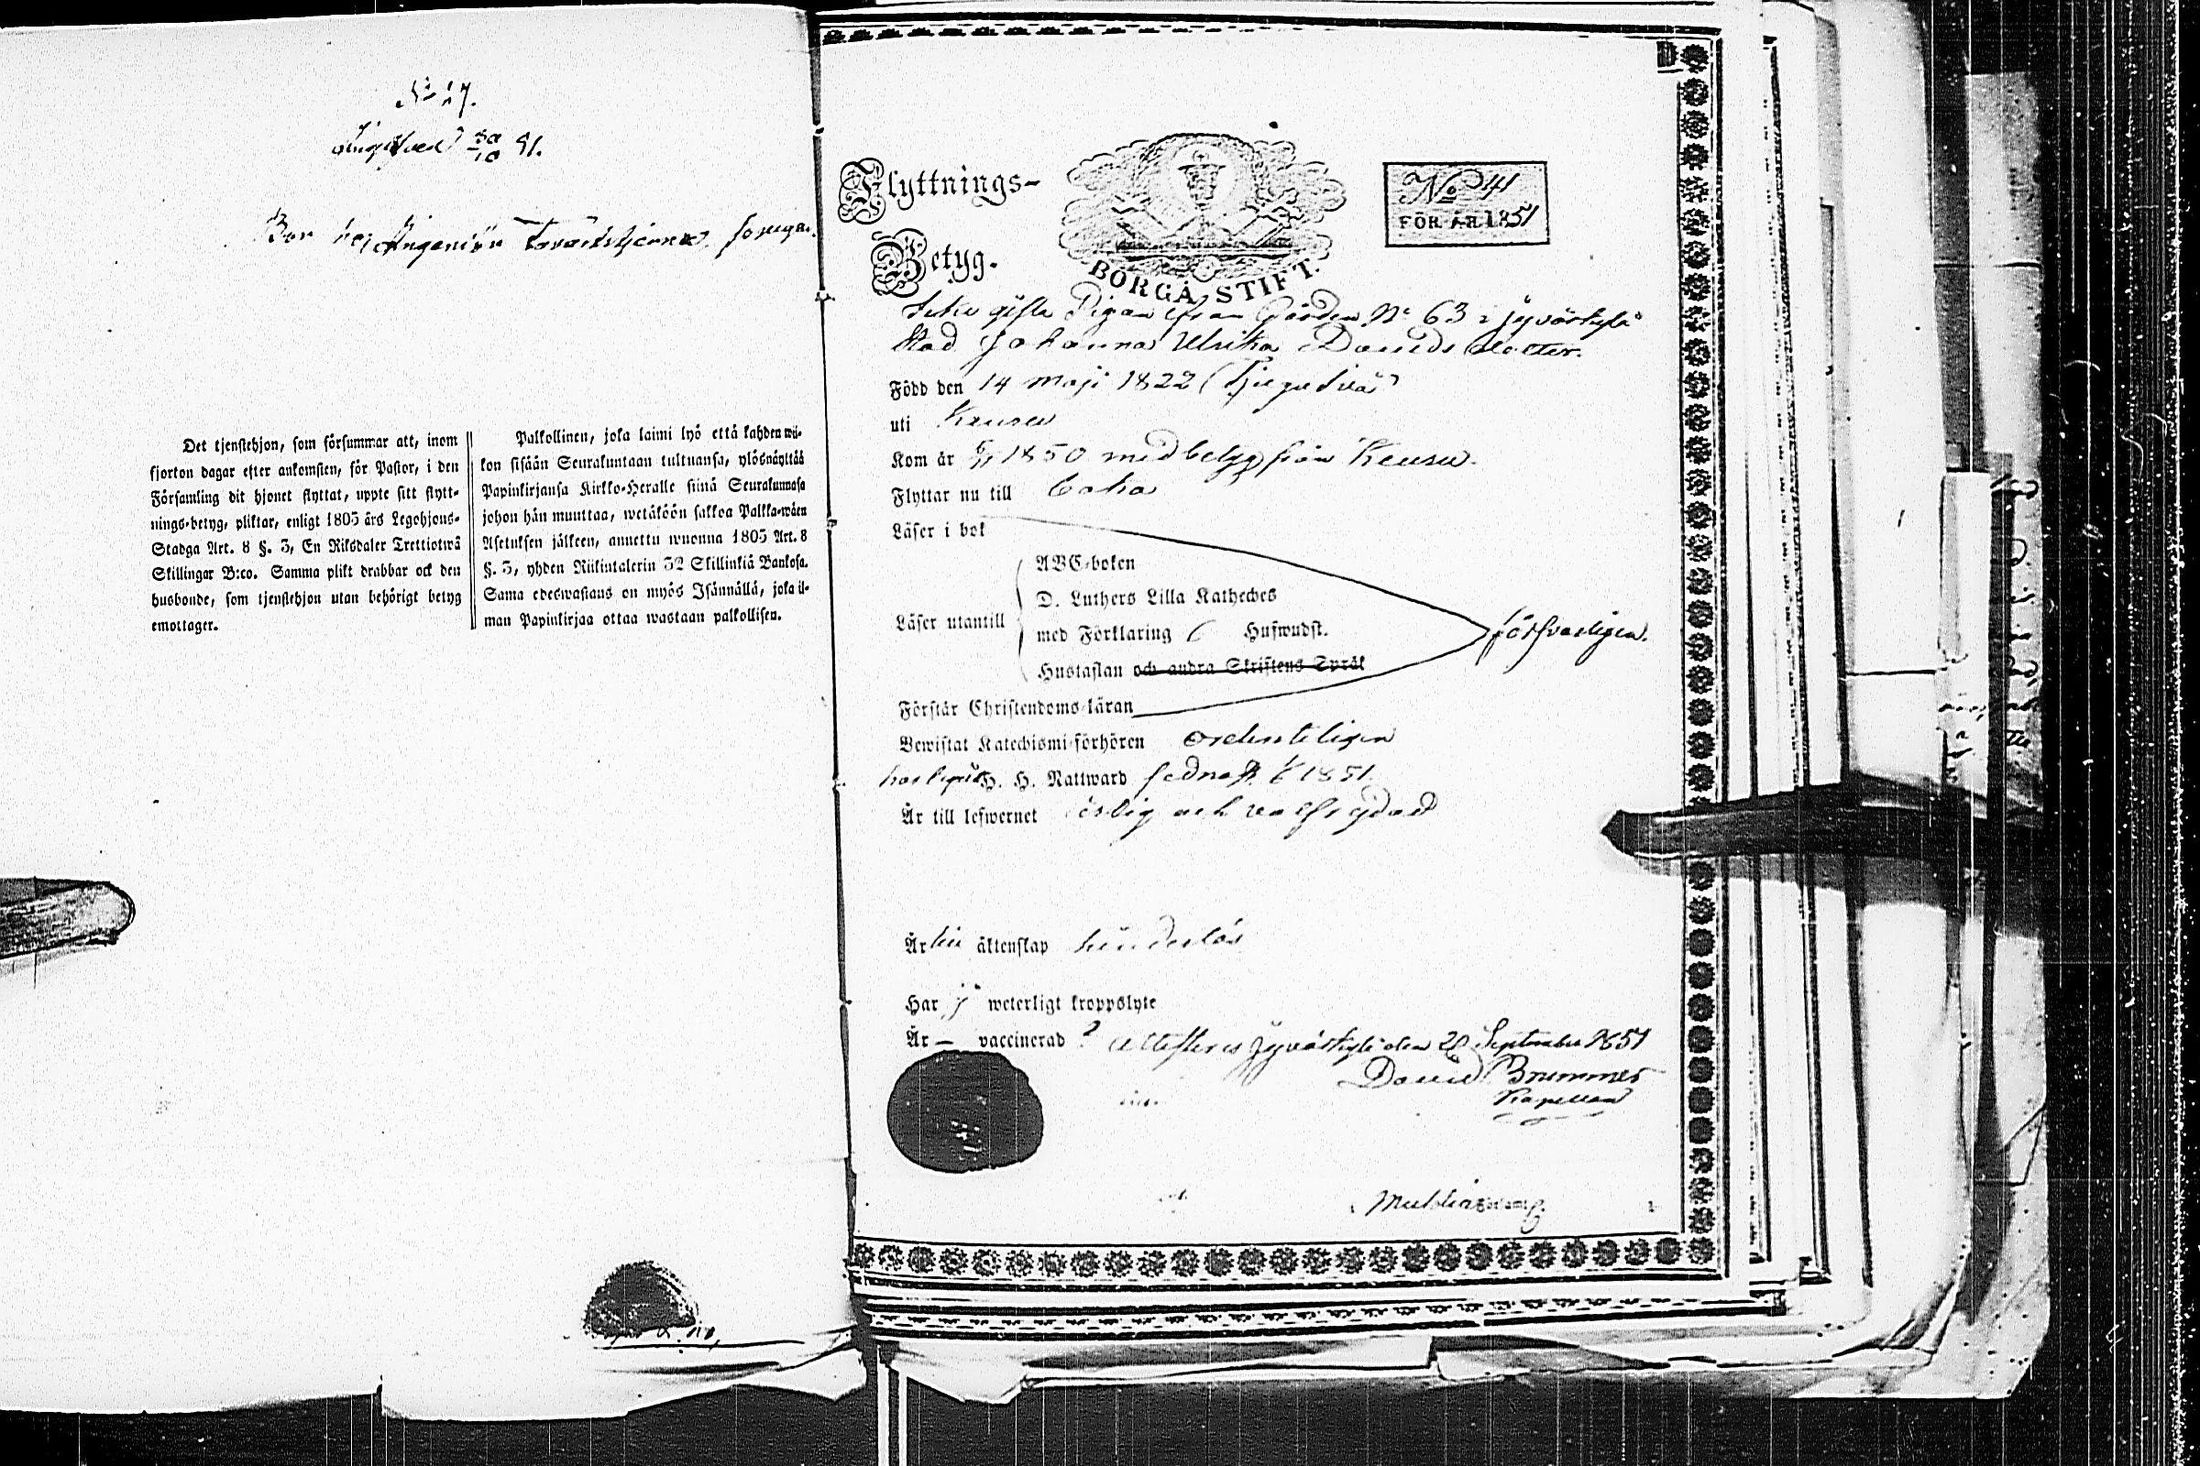 Det tjenstehjon, som försummar att, inom
fjorton dagar efter ankomsten, för Pastor, i den
Församling dit hjonet flyttat, uppte sitt flytt-
nings-betyg, pliktar, enligt 1805 års Legohjons-
Stadga Art. 8 §. 3, En Riksdaler Trettiotwå
Skillingar B:co. Samma plikt drabbar ock den
husbonde, som tjenstehjon utan behörigt betyg
emottager.
Palkollinen, joka laimi lyö että kahden wii-
kon sisään Seurakuntaan tultuansa, ylösnäyttää
Papinkirjansa Kirkko-Heralle siinä Seurakunnasa
johon hän muuttaa, wetäköön sakkoa Palkka-wäen
Asetuksen jälkeen, annettu wuonna 1805 Art. 8
§. 3, yhden Riikintalerin 32 Skillinkiä Bankosa.
Sama edeswastaus on myös Isännällä, joka il-
man Papinkirjaa ottaa wastaan palkollisen.
Flyttnings-
Betyg.
BORGÅ STIFT.
No 41
FÖR ÅR 1851
gifta Pigan från Gården No 63 i Jyväskylä
Stad Johanna Ulrika Davidsdotter.
Född den 14 maji 1822 (Tjugutvå)
uti Keuru
Kom år 1850 med betyg från Keuru.
Flyttar nu till
Läser i bok
Läser utantill
ABC-boken
D. Luthers Lilla Katheches
med Förklaring Hufwudst.
Hustaflan och andra Skriftens Språk
försvarligen.
Förstår Christendoms-läran
Bewistat Katechismi-förhören ordenteligen
H. H. Nattward sednast 1851.
Är till lefwernet ärlig och välfrejdad
Är till äktenskap hinderlös
Har ej weterligt kroppslyte
Är — vaccinerad ? attesteras Jyväskylä den 20 September 1851
David Brummer
Kapellan